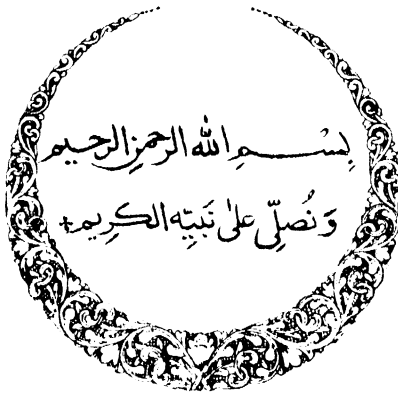 بِسْمِ اللّٰه الرحمنِ الرحیم
وَنُصَلِّی عَلیٰ نَبِیِّه الکرِیم